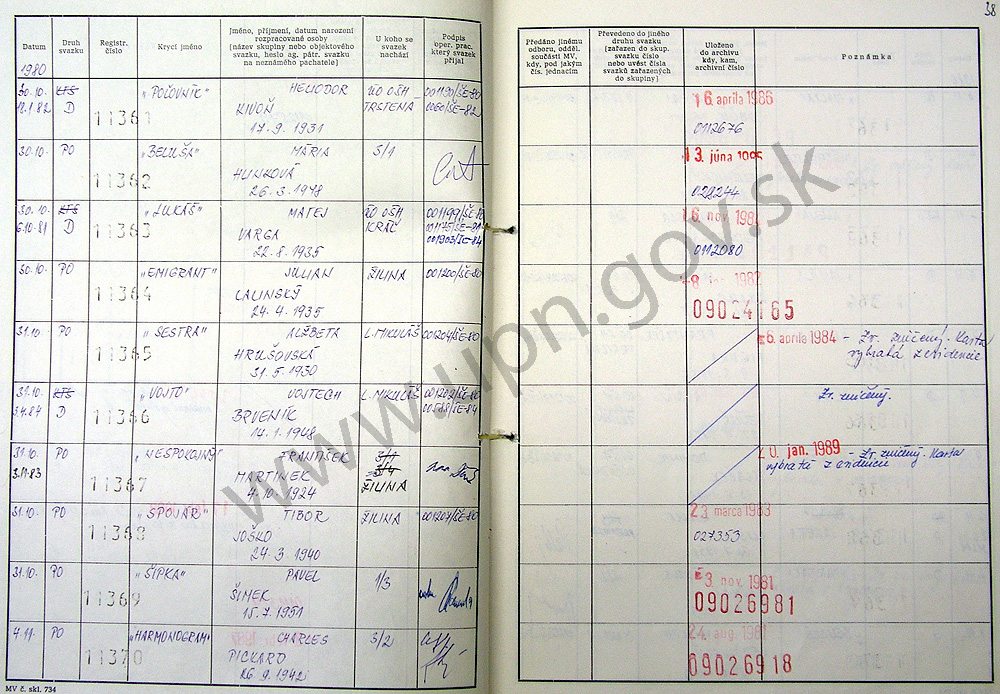 38
Datum
Druh svazku
Registr. číslo
Krycí jméno
Jméno, příjmení, datum narození
rozpracované osoby
[název skupiny nebo objektového
svazku, heslo ag. pátr. svazku
na neznámého pachatele]
U koho se
svazek
nachází
Podpis
oper. prac.
který svazek
přijal
Předáno jinému
odboru, odděl.
součásti MV,
kdy, pod jakým
čís. jednacím
Převedeno do jiného
druhu svazku
[zařazen do skup.
svazku číslo
nebo uvést čísla
svazků zařazených
do skupiny]
Uloženo
do archivu
kdy, kam,
archivní číslo
Poznámka
1980
30.10. KTS 11361 "POĽOVNÍK" HELIODOR ÚO OŠH 001190/ŠE-80 16. apríla 1986
D KIVOŇ TRSTENÁ 0112676
17. 9. 1931
30.10. PO 11362 "BELUŠA" MÁRIA S/1 13. júna
HLINKOVÁ
26. 3. 1948
30.10. KTS 11363 "LUKÁŠ" MATEJ ÚO OŠH 001199/ŠE-80
6.10.81 D VARGA KRÁĽ 001175/ŠE-81 0112080
22. 8. 1935
30.10. PO 11364 "EMIGRANT" JULIAN ŽILINA 001200/ŠE-80
LALINSKÝ 09024165
24. 4. 1935
31.10. PO 11365 "SESTRA" ALŽBETA L. MIKULÁŠ 001204/ŠE-80 6. apríla 1984 - Zv. zničený. Karta
HRUŠOVSKÁ vybratá z evidencie
31. 5. 1930
31.10. KTS 11366 "VOJTO" VOJTECH L. MIKULÁŠ 001202/ŠE-80 Zv. zničený.
3.4.84 D BRVENÍK
14. 1. 1948
31.10. PO 11367 "NESPOKOJNÝ" FRANTIŠEK 3/1 20. jan. 1989 - Zv. zničený. Karta
MARTINEK 3/4 vybratá z evidencie
4. 10. 1924 ŽILINA
31.10. PO 11368 "SPOVÁR" TIBOR ŽILINA 001207/ŠE-80 23. marca 1983
JOŠKO 027353
24. 3. 1940
31.10. PO 11369 "ŠÍPKA" PAVEL 1/3 3. nov. 1981
ŠIMEK 09026981
15. 7. 1951
4.11. PO 11370 "HARMONOGRAM" CHARLES S/2 24. aug. 1981
PICKARD 09026918
26. 9. 1942
MV č. skl. 734
www.upn.gov.sk